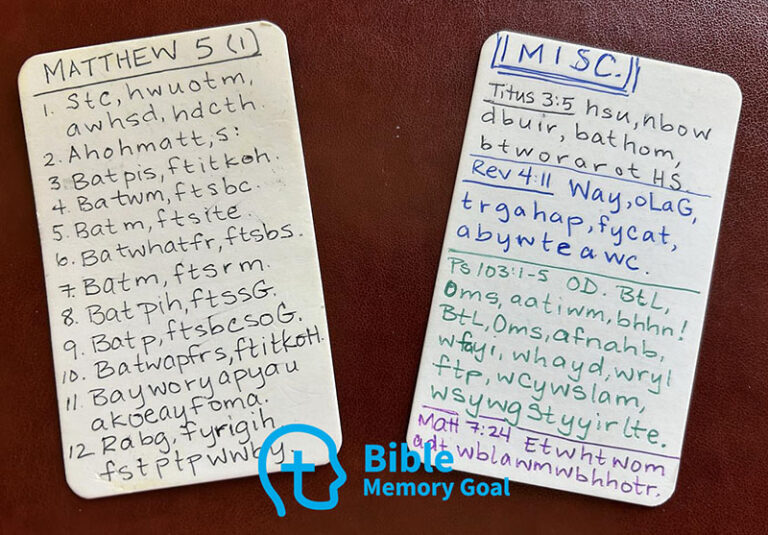 MATTHEW 5 (1)
1. StC, hwuotm,
awhsd, hdcth.
2. Ahohmatt, s:
3. Batpis, ftitkoh.
4. Batwm, ftsbc.
5. Batm, ftsite.
6. Batwhatfr, ftsbs.
7. Batm, ftsrm.
8. Batpih, ftssG.
9. Batp, ftsbcsoG.
10. Batwapfrs, ftitkoH.
11 Bayworyapyau
akoeayfoma.
12 Rabg, fyrigih
fstptpwwby.
MISC.
Titus 3:5 hsu, nbow
dbuir, bathom,
btworarot HS.
Rev 4:11 Way, oLaG,
trgahap, fycat,
abywteawc.
Ps 103:1-5 OD. BtL,
Oms, aatiwm, bhhn!
BtL, Oms, afnahb,
wfayi, whayd, wryl
ftp, wcywslam,
wsywgstyyirlte.
Matt 7:24 Etwhtwom
adt, wblawmwbhhotr.
Bible
Memory Goal